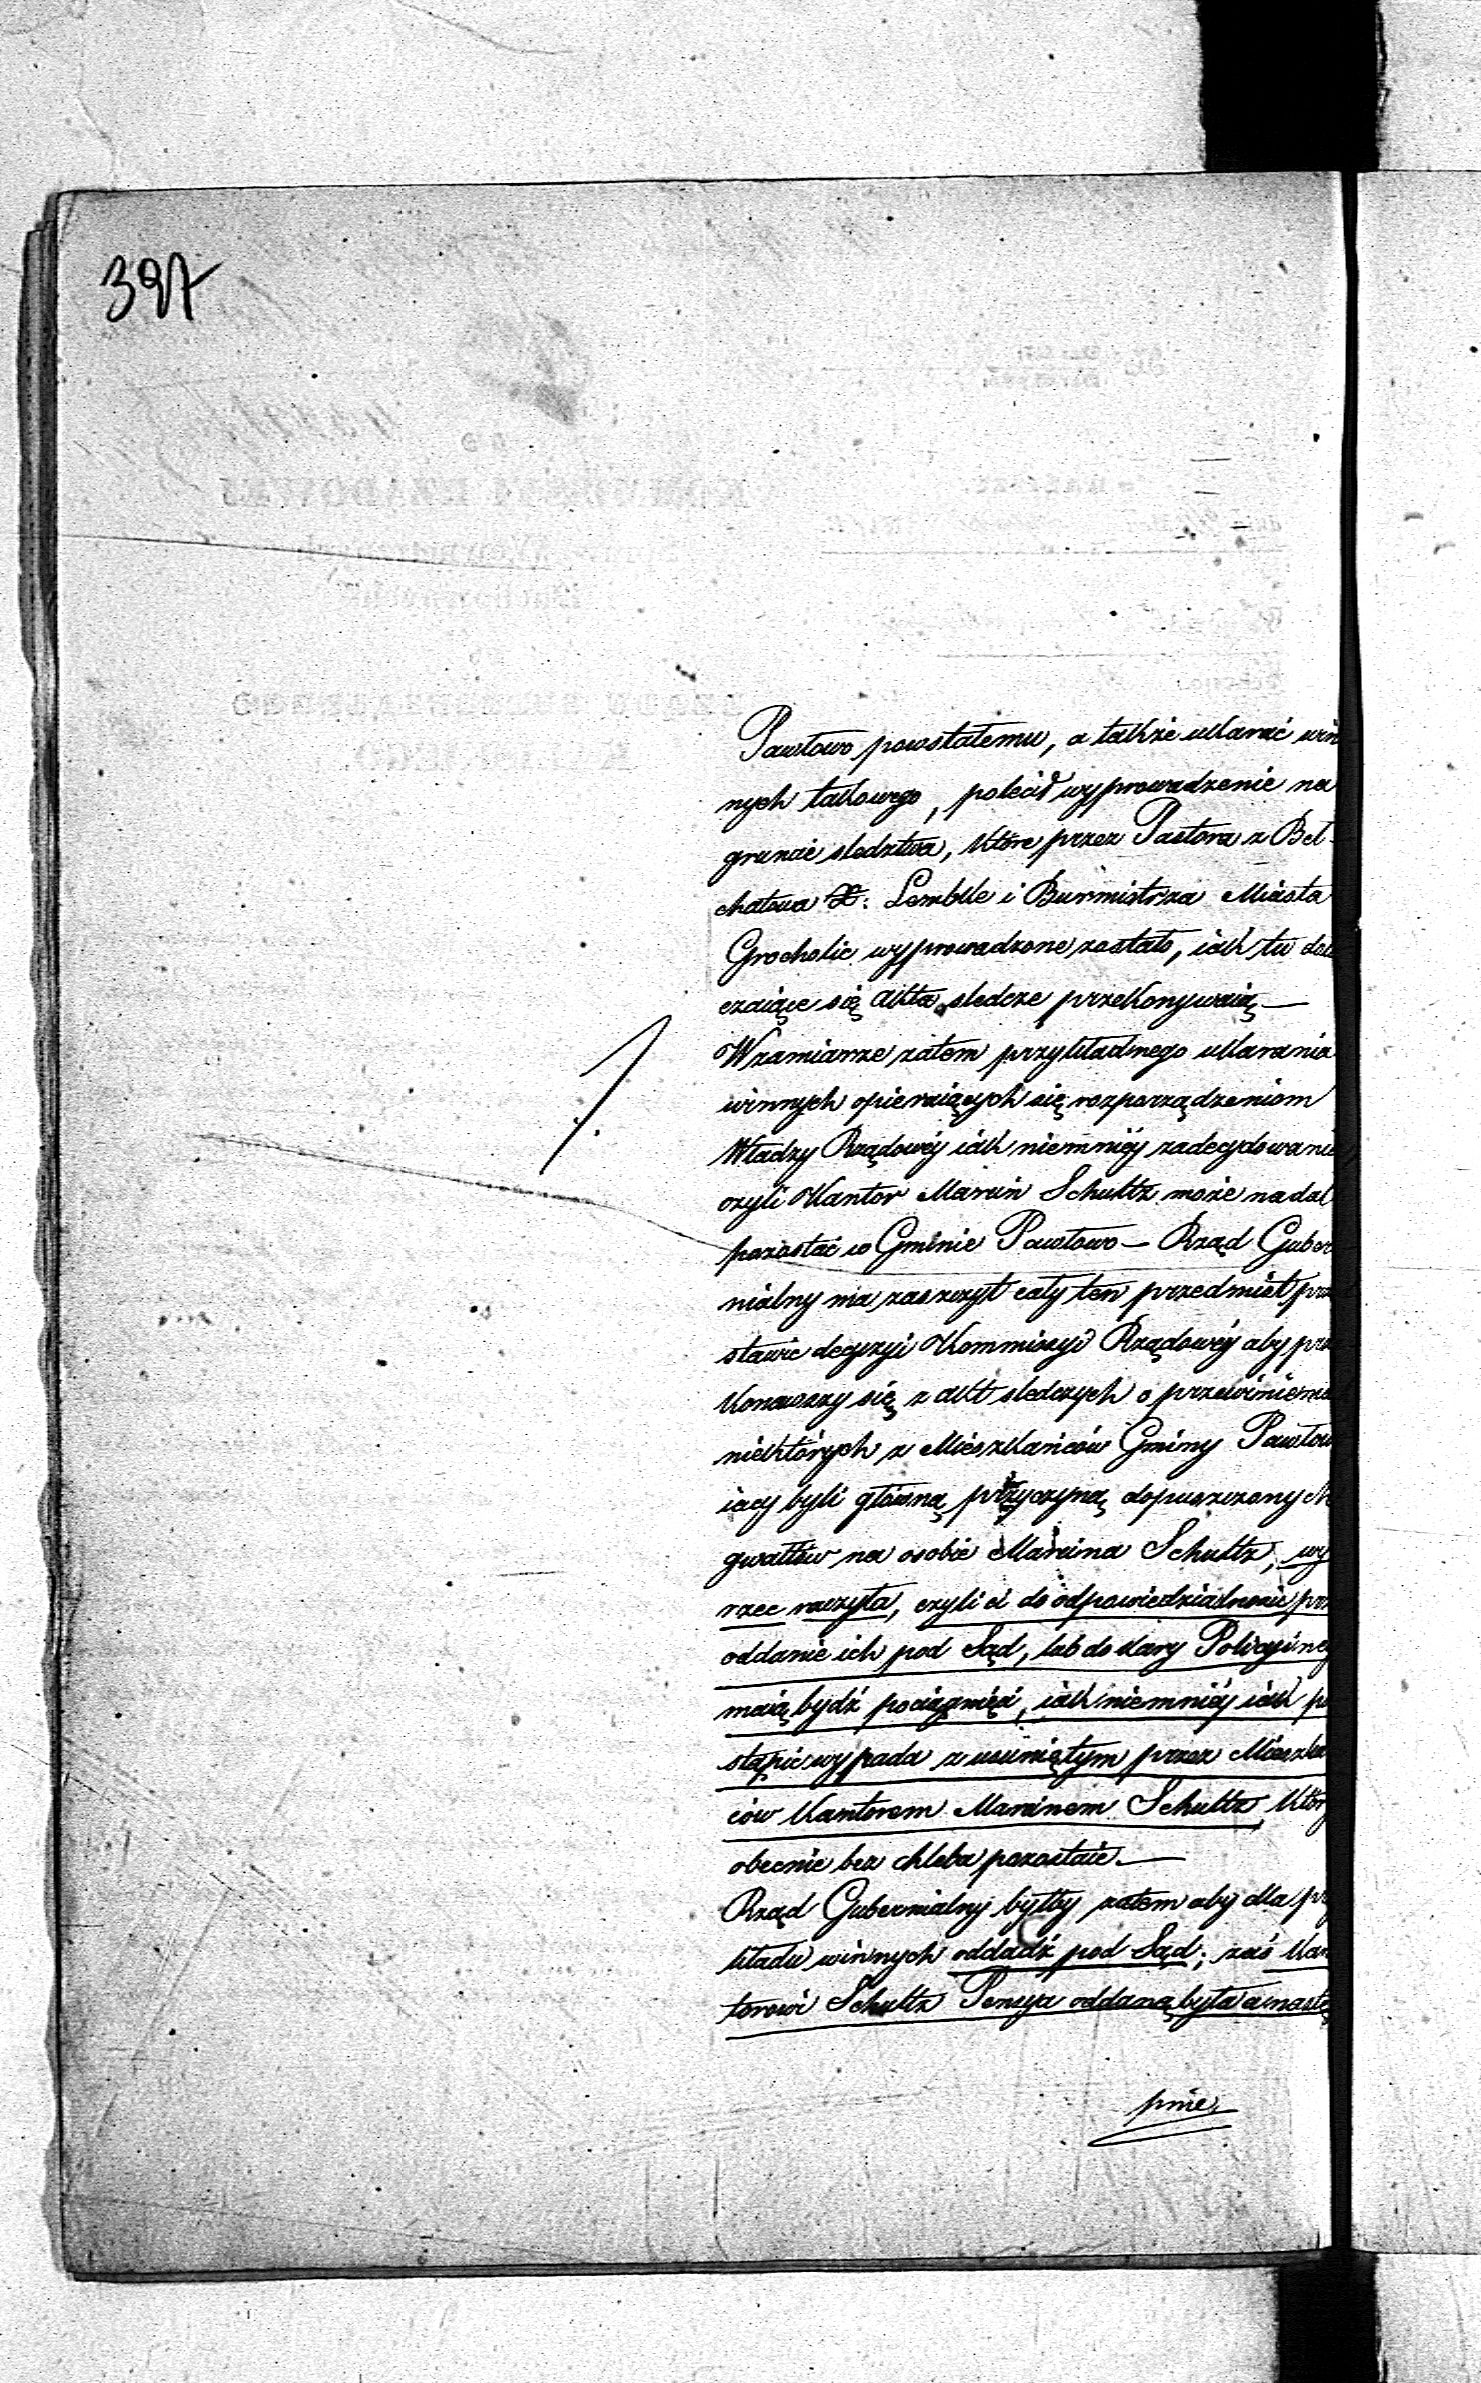 397
Pawłowo powstałemu, a także ukarać win
nych takowego, polecił wyprowadzenie na
gruncie sledztwa, które przez Pastora z Beł-
chatowa X: Lembke i Burmistrza Miasta
Grocholic wyprowadzone zostało, iak tu dołą
czaiące się akta sledcze przekonywaią —
W zamiarze zatem przykładnego ukarania
winnych opieraiących się rozporządzeniom
Władzy Rządowéy iak niemniéy zadecydowanie
czyli Kantor Marcin Schultz może nadal
pozostać w Gminie Pawłowo — Rząd Guber
nialny ma zaszczyt cały ten przedmiot prze
stawic decyzyi Kommissyi Rządowéy aby prze
konawszy się z akt sledczych o przewinieniu
niektórych z Mieszkańców Gminy Pawłow
iacy byli główną przyczyną dopuszczonych
gwałtów na osobie Marcina Schultz, wy
rzec raczyła, czyli ci do odpowiedzialnosci prz
oddanie ich pod Sąd, lub do kary Policyiney
maią bydź pociągnięci, iak niemniéy iak po
stąpic wypada z usuniętym przez Mieszkań
ców Kantorem Marcinem Schultz, który
obecnie bez chleba pozostaie. —
Rząd Gubernialny byłby zatem aby dla przy
kładu winnych oddadź pod Sąd; zaś Kan
torowi Schultz Pensya oddaną była a nastę
pnie